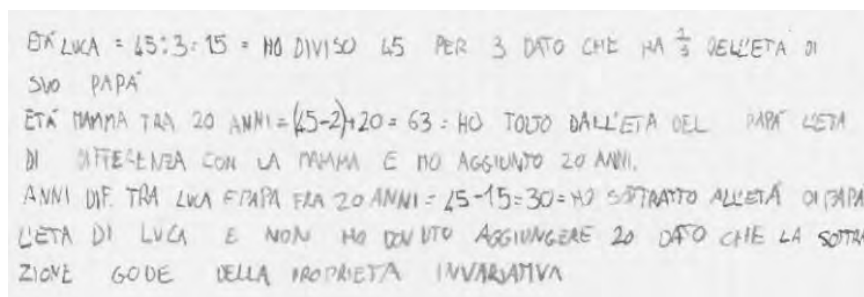 ETÀ LUCA = 45:3=15 = HO DIVISO 45 PER 3 DATO CHE HA 1/3 DELL'ETÀ DI
SUO PAPÀ
ETÀ MAMMA TRA 20 ANNI=(45-2)+20= 63 = HO TOLTO DALL'ETÀ DEL PAPÀ L'ETÀ
DI DIFFERENZA CON LA MAMMA E HO AGGIUNTO 20 ANNI.
ANNI DIF. TRA LUCA E PAPA FRA 20 ANNI= 45-15=30=HO SOTTRATTO ALL'ETÀ DI PAPA
L'ETÀ DI LUCA E NON HO DOVUTO AGGIUNGERE 20 DATO CHE LA SOTTRA
ZIONE GODE DELLA PROPRIETÀ INVARIATIVA